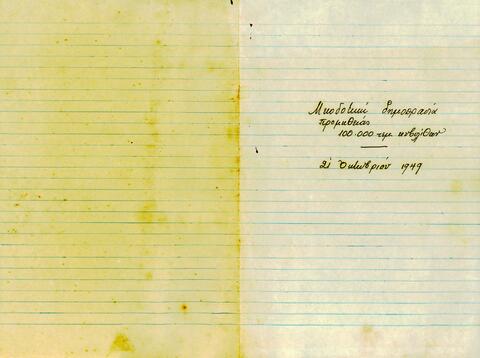 Μειοδοτική Δημοπρασία
προμηθείας
100.000 τεμ. κυβολίθων
21 Ὀκτωβρίου 1949